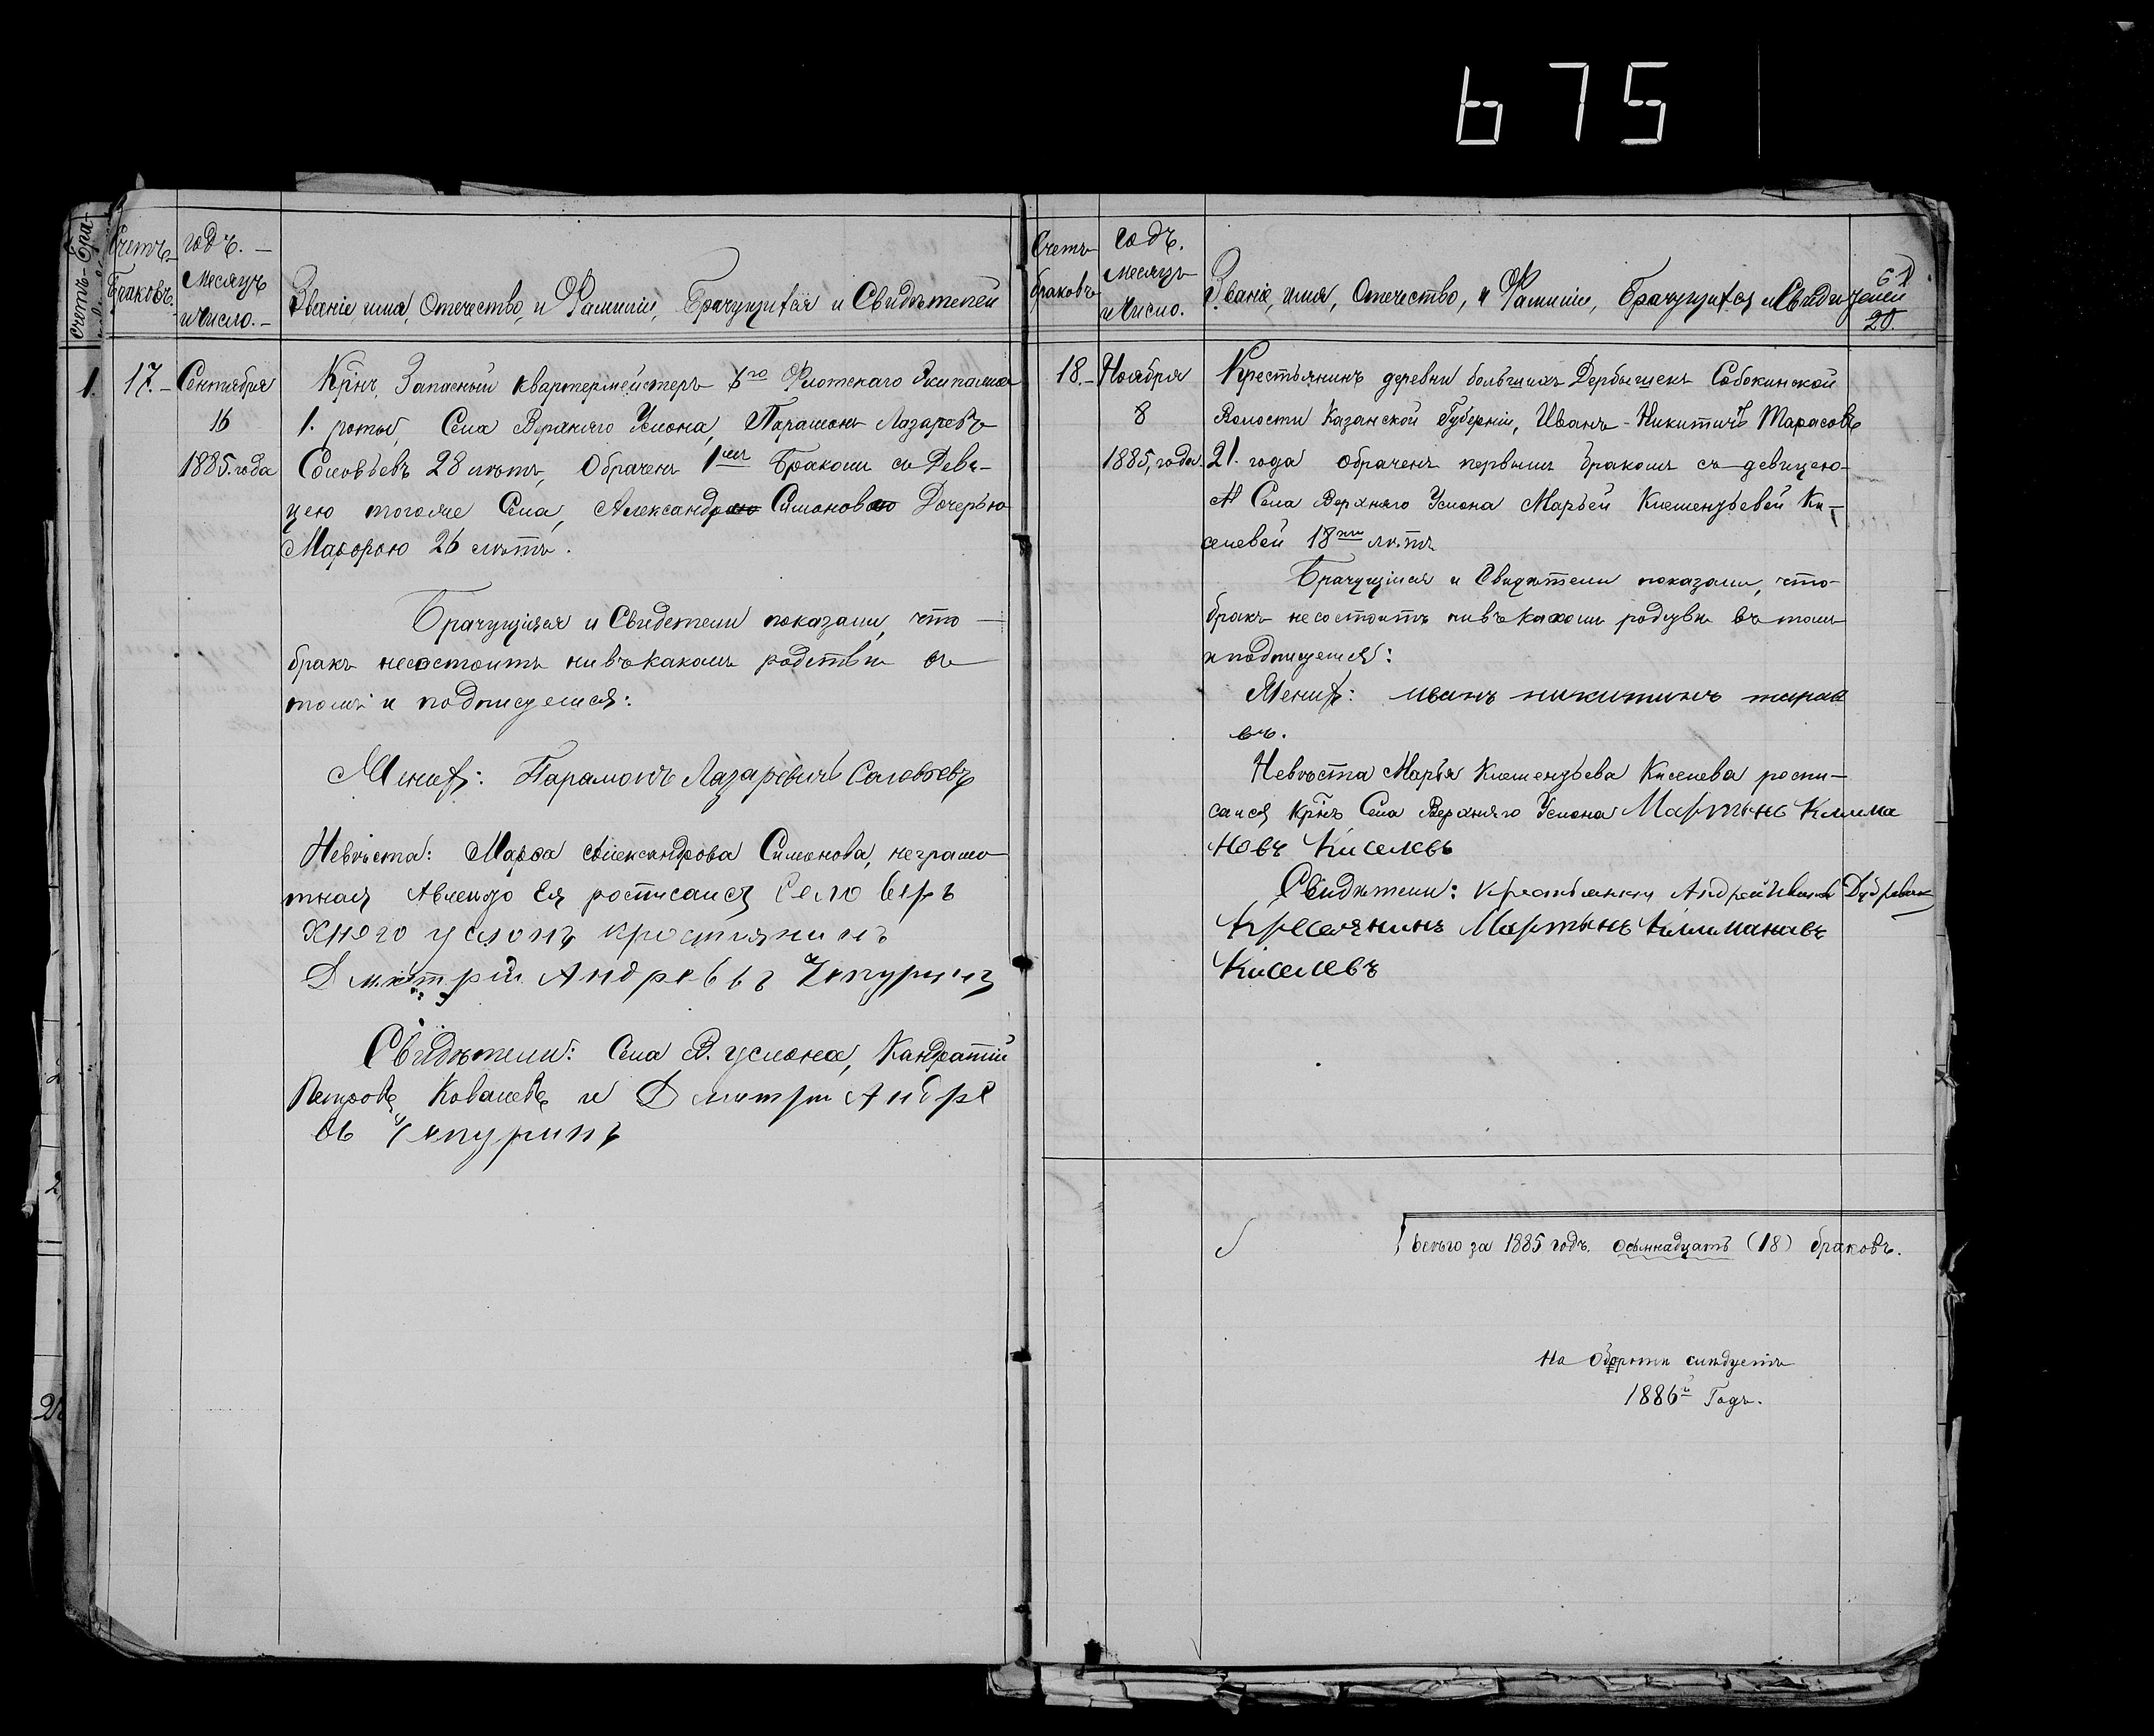 675
Счетъ
Браковъ.
годъ. —
Месяцъ
и Число. —
Званіе, имя, Отчество, и Фамиліи, Брачущихся и Свидѣтелей
1.
17. —
Сентября
16
1885. года
Крн͠ъ, Запасный квартермейстеръ 6го Флотскаго Экипажа
1. роты, Села Верхняго Услона, Парамонъ Лазаревъ
Соловьевъ 28 лѣтъ, Обраченъ 1мъ Бракомъ съ Деви-
цею тогоже Села, Александр Симонов Дочерью
Марфою 26 лѣтъ.
Брачущіяся и Свидетели показали, что —
бракъ несостоитъ нивъкакомъ родствѣ въ
томъ и подписуемся:
Женихъ: Парамонъ Лазаревичъ Соловьевъ
Невѣста: Марфа Александрова Симонова, неграмо-
тная Авместо Ея росписался Село Веръ
хняго услонъ кростиянинъ
Дмитрй Андревъ Чепуринъ
Свидѣтели: Села В. услона, Кандратій
Петровъ Ковалевъ и Дмитри Андре
въ Чепуринъ
Счетъ
браковъ
годъ.
Месяцъ
и Число.
Званіе, имя, Отчество, и Фамиліи, Брачущихся и Свидѣтелей
20.
18. —
Ноября
8
1885, года.
Крестьянинъ деревни большихъ Дербышекъ Собокинской
Волости Казанской Губерніи, Иванъ Никитичъ Тарасовъ
21. года обраченъ первымъ бракомъ съ девицею
Села Верхняго Услона Марьей Клементьевой Ки-
селевой 18ти лѣтъ
Брачущіяся и Свидѣтели показали, что
бракъ несостоитъ нивъкакомъ родствѣ въ томъ
и подписуемся:
Женихъ: иванъ никитинъ тарас
въ.
Невѣста Марья Клементьева Киселева роспи-
сался Крн͠ъ Села Верхняго Услона Мартынъ Клима
новъ Киселевъ
Свидѣтели: крестьянинъ Андрей Ивановъ
Кресеянинъ Мартынъ Климановъ
Киселевъ
Всего за 1885 годъ. осьмнадцать (18) браковъ.
На Оборотѣ слѣдуетъ
1886й Годъ.